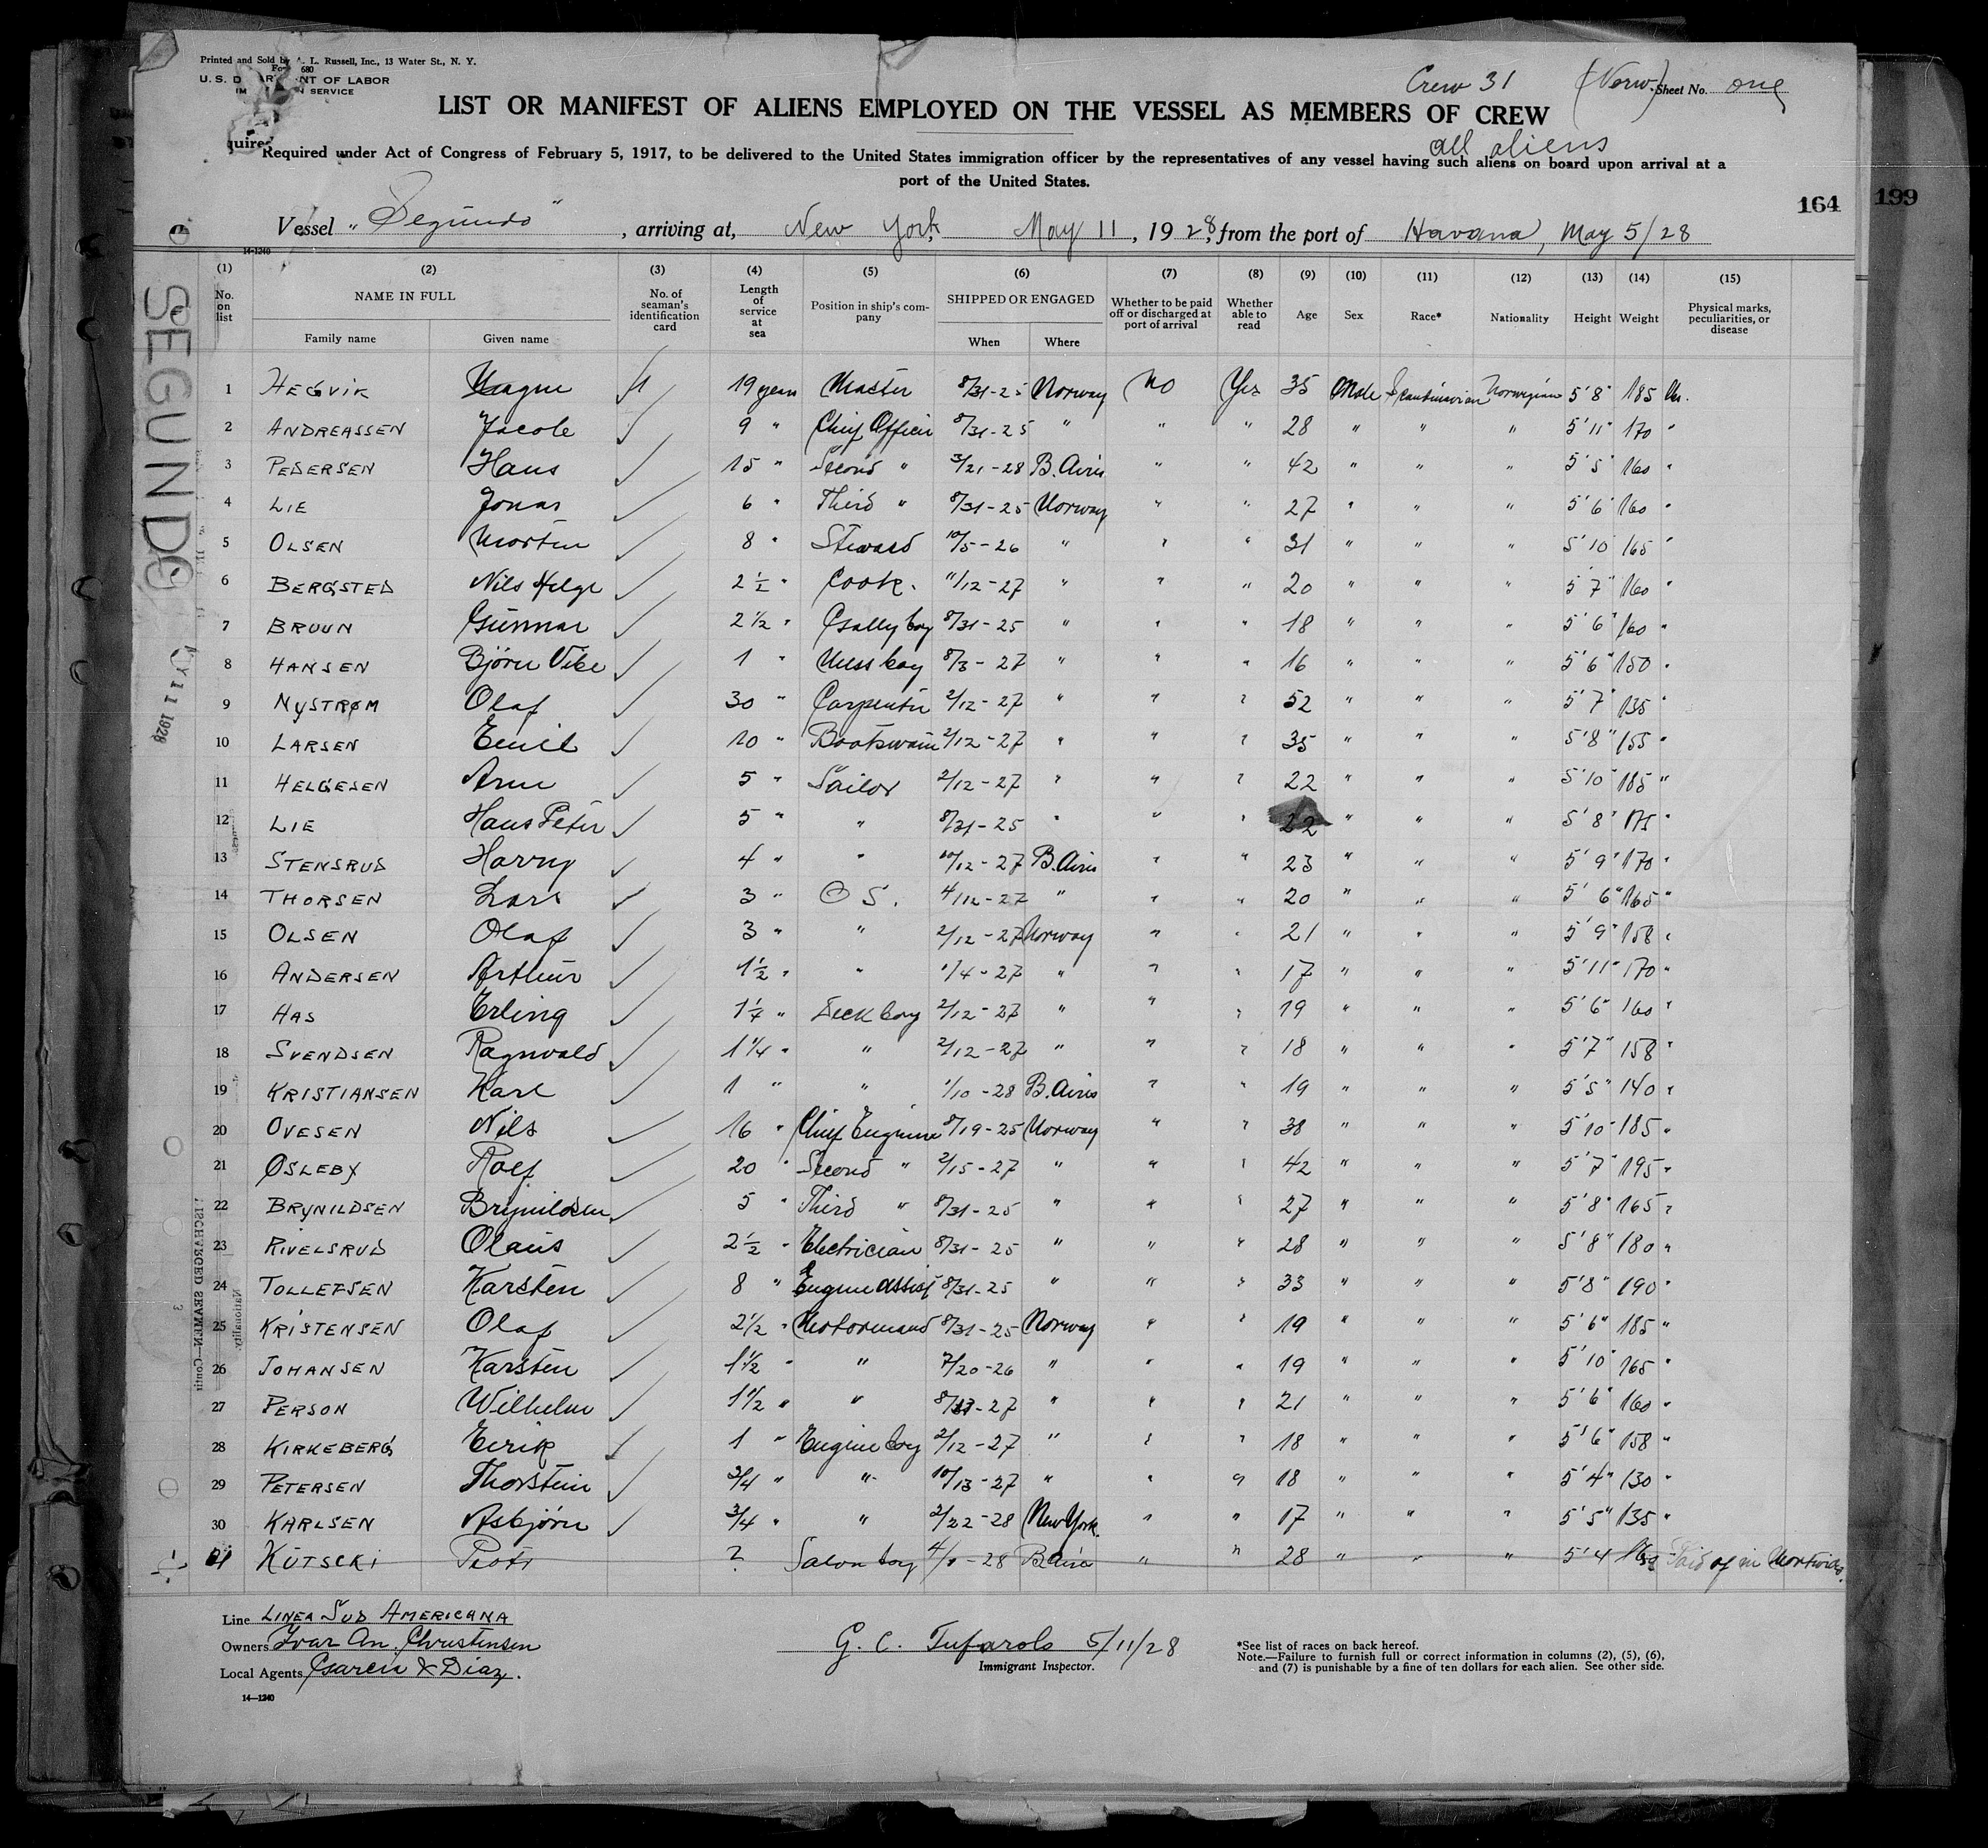 Printed and Sold by A. L. Russell, Inc., 13 Water St., N. Y.
680
U. S. D AR NT OF LABOR
IM N SERVICE
Crew 31 (Norw.) Sheet No. one
LIST OR MANIFEST OF ALIENS EMPLOYED ON THE VESSEL AS MEMBERS OF CREW
all aliens
quired
Required under Act of Congress of February 5, 1917, to be delivered to the United States immigration officer by the representatives of any vessel having such aliens on board upon arrival at a
port of the United States.
164 199
Vessel "Segundo", arriving at, New York, May 11, 1928, from the port of Havana, May 5/28
14-1240
SEGUNDO
Y 11 1928
(1) (2) (3) (4) (5) (6) (7) (8) (9) (10) (11) (12) (13) (14) (15)
No. on list NAME IN FULL No. of seaman's identification card Length of service at sea Position in ship's company SHIPPED OR ENGAGED Whether to be paid off or discharged at port of arrival Whether able to read Age Sex Race* Nationality Height Weight Physical marks, peculiarities, or disease
Family name Given name When Where
1 HEGVIK Magne 19 years Master 8/31-25 Norway No Yes 35 Male Scandinavian Norwegian 5'8" 185 lbs.
2 ANDREASSEN Jacob 9 " Chief Officer 8/31-25 " " " 28 " " " 5'11" 170 "
3 PEDERSEN Hans 15 " Second " 3/21-28 B. Aires " " 42 " " " 5'5" 160 "
4 LIE Jonas 6 " Third " 8/31-25 Norway " " 27 " " " 5'6" 160 "
5 OLSEN Morten 8 " Steward 10/5-26 " " " 31 " " " 5'10" 165 "
6 BERGSTED Nils Helge 2 1/2 " Cook. 11/12-27 " " " 20 " " " 5'7" 160 "
7 BRUUN Gunnar 2 1/2 " Galley boy 8/31-25 " " " 18 " " " 5'6" 160 "
8 HANSEN Bjørn Vibe 1 " Mess boy 8/3-27 " " " 16 " " " 5'6" 150 "
9 NYSTRØM Olaf 30 " Carpenter 2/12-27 " " " 52 " " " 5'7" 135 "
10 LARSEN Emil 10 " Boatswain 2/12-27 " " " 35 " " " 5'8" 155 "
11 HELGESEN Arne 5 " Sailor 2/12-27 " " " 22 " " " 5'10" 185 "
12 LIE Hans Peter 5 " " 8/31-25 " " " 22 " " " 5'8" 175 "
13 STENSRUD Harry 4 " " 10/12-27 B. Aires " " 23 " " " 5'9" 170 "
14 THORSEN Lars 3 " O S. 4/12-27 " " " 20 " " " 5'6" 165 "
15 OLSEN Olaf 3 " " 2/12-27 Norway " " 21 " " " 5'9" 158 "
16 ANDERSEN Arthur 1 1/2 " " 1/4-27 " " " 17 " " " 5'11" 170 "
17 HAS Erling 1 1/4 " Deck boy 2/12-27 " " " 19 " " " 5'6" 160 "
18 SVENDSEN Ragnvald 1 1/4 " " 2/12-27 " " " 18 " " " 5'7" 158 "
19 KRISTIANSEN Karl 1 " " 1/10-28 B. Aires " " 19 " " " 5'5" 140 "
20 OVESEN Nils 16 " Chief Engineer 8/19-25 Norway " " 38 " " " 5'10" 185 "
21 ØSLEBY Rolf 20 " Second " 2/15-27 " " " 42 " " " 5'7" 195 "
22 BRYNILDSEN Brynildsen 5 " Third " 8/31-25 " " " 27 " " " 5'8" 165 "
23 RIVELSRUD Olaus 2 1/2 " Electrician 8/31-25 " " " 28 " " " 5'8" 180 "
24 TOLLEFSEN Karsten 8 " Engine assist 8/31-25 " " " 33 " " " 5'8" 190 "
25 KRISTENSEN Olaf 2 1/2 " Motormand 8/31-25 Norway " " 19 " " " 5'6" 185 "
26 JOHANSEN Karsten 1 1/2 " " 7/20-26 " " " 19 " " " 5'10" 165 "
27 PERSON Wilhelm 1 1/2 " " 8/ -27 " " " 21 " " " 5'6" 160 "
28 KIRKEBERG Eirik 1 " Engine boy 2/12-27 " " " 18 " " " 5'6" 158 "
29 PETERSEN Thorstein 3/4 " " 10/13-27 " " " 18 " " " 5'4" 130 "
30 KARLSEN Asbjørn 3/4 " " 2/22-28 New York. " " 17 " " " 5'5" 135 "
31 KUTSCKI Piotr ? Salon boy 4/ -28 B. Aires " " 28 " " " 5'4 Paid of in
DISCHARGED SEAMEN—Contin
Nationality.
Line LINEA SUD AMERICANA
Owners Ivar An. Christensen
Local Agents Garcia & Diaz.
14—1240
G. C. Tufarolo 5/11/28
Immigrant Inspector.
*See list of races on back hereof.
Note.—Failure to furnish full or correct information in columns (2), (5), (6),
and (7) is punishable by a fine of ten dollars for each alien. See other side.